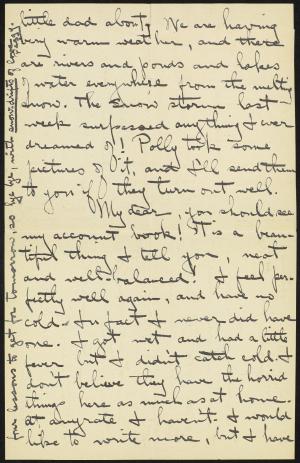 little dad about. We are having
very warm weather, and there
are rivers and ponds and lakes
of water everywhere from the melting
snow. The snow storm last
week surpassed anything I ever
dreamed of! Polly took some
pictures of it, and I'll send them
to you if they turn out well.
My dear, you should see
my account book! It is a beau-
tiful thing I tell you, neat
and well-balanced. I feel per-
fectly well again, and have no
cold. In fact I never did have
one. I got wet and had a little
fever but I didn't catch cold. I
don't believe they have the horrid
things here as much as at home.
at anyrate I haven't. I would
like to write more, but I have
four lessons to get for tomorrow, so bye bye, with snowdrifts of love,